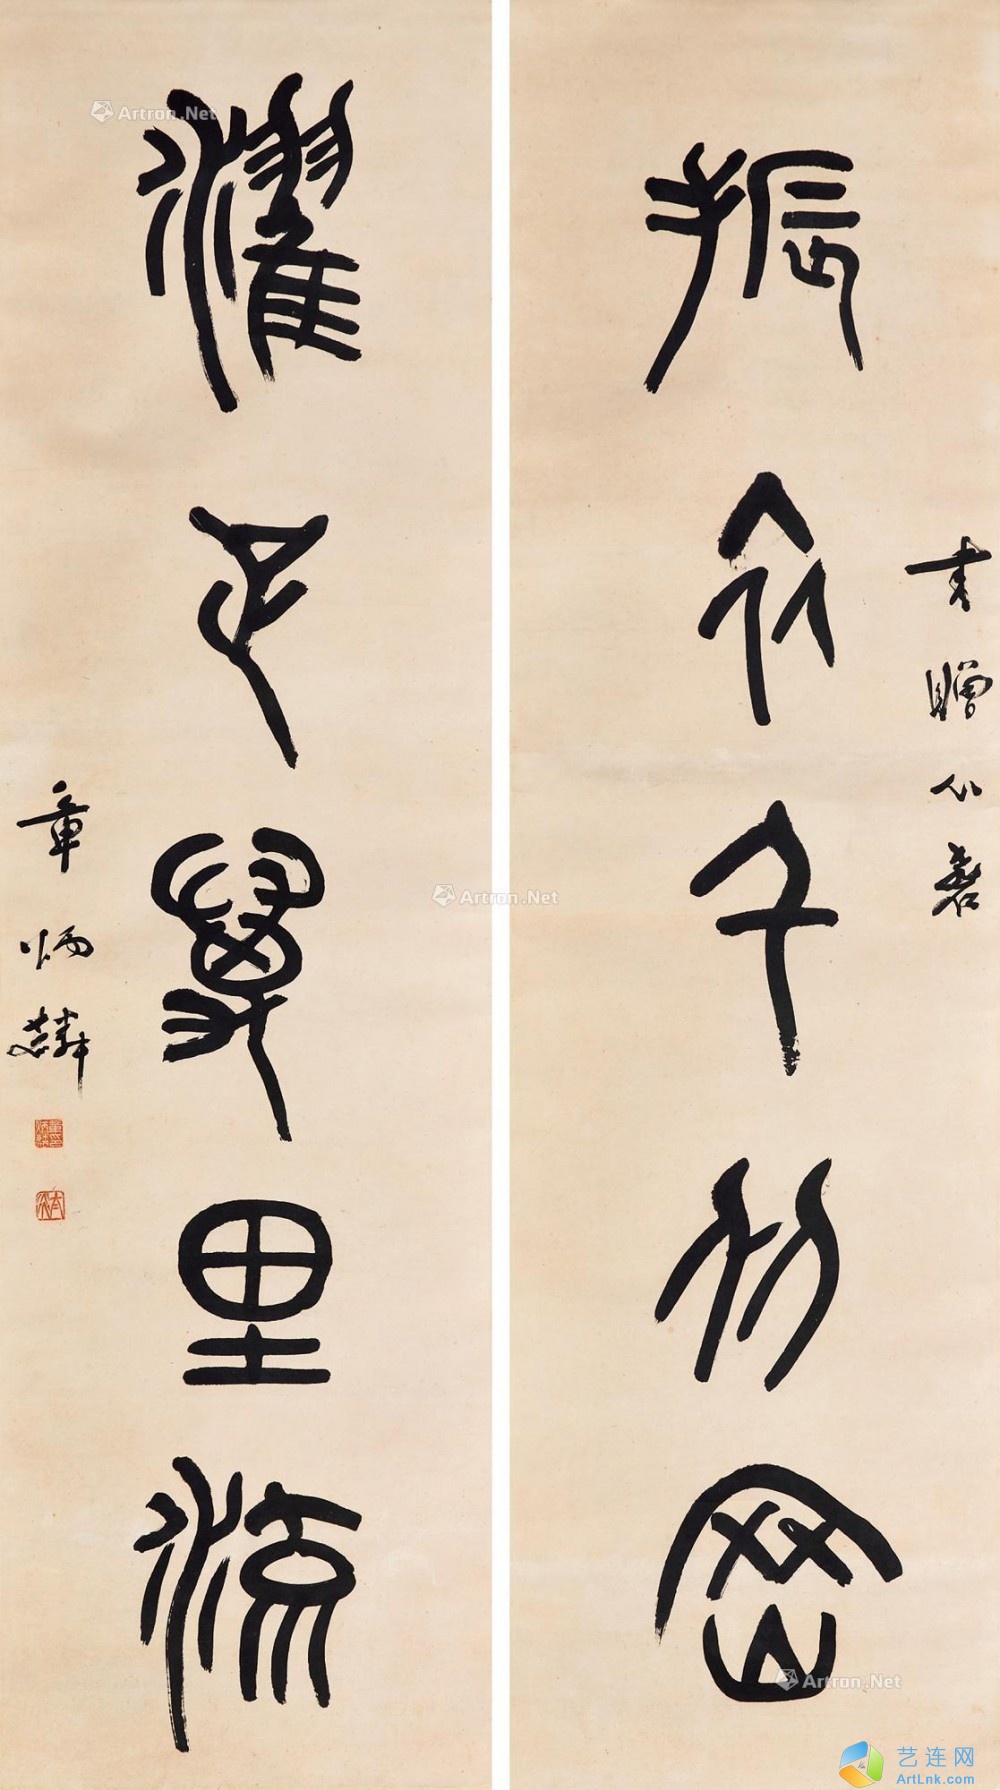 振衣千仞岡
書贈
濯足萬里流
章炳麟
太炎
Artron.Net
Artron.Net
Artron.Net
艺连网
ArtLnk.com